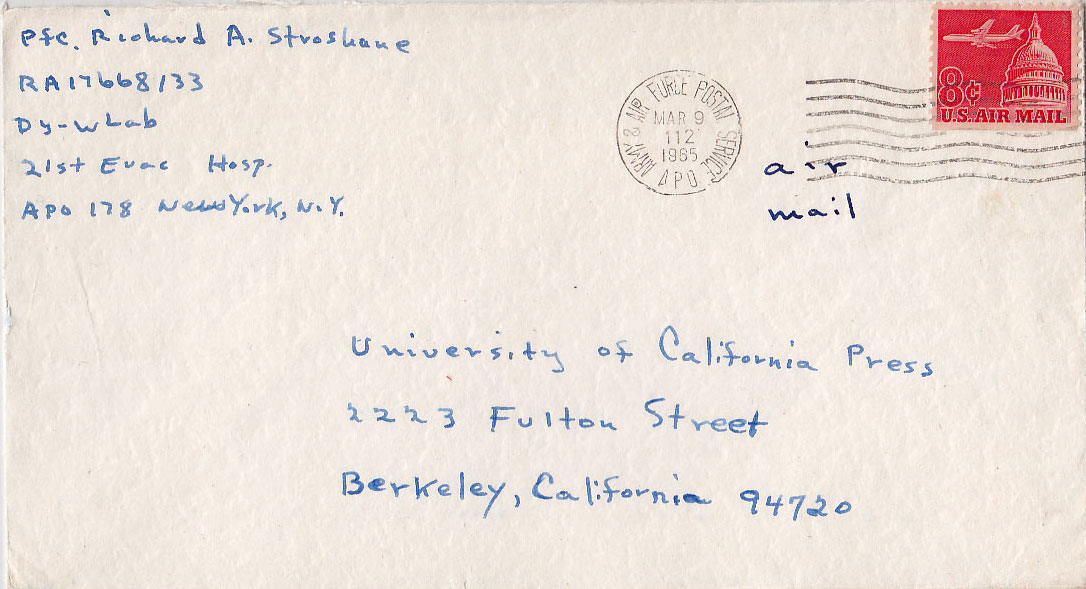 Pfc. Richard A. Stroshane
RA17668133
Dy-WLab
21st Evac Hosp.
APO 178 New York, N.Y.
ARMY & AIR FORCE POSTAL SERVICE
MAR 9
112
1965
APO
8¢
U.S. AIR MAIL
air
mail
University of California Press
2223 Fulton Street
Berkeley, California 94720